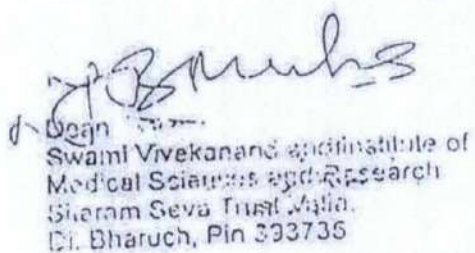 Dean
Swami Vivekanand and institute of
Medical Sciences and Research
Seva Trust
Di. Bharuch, Pin 393735